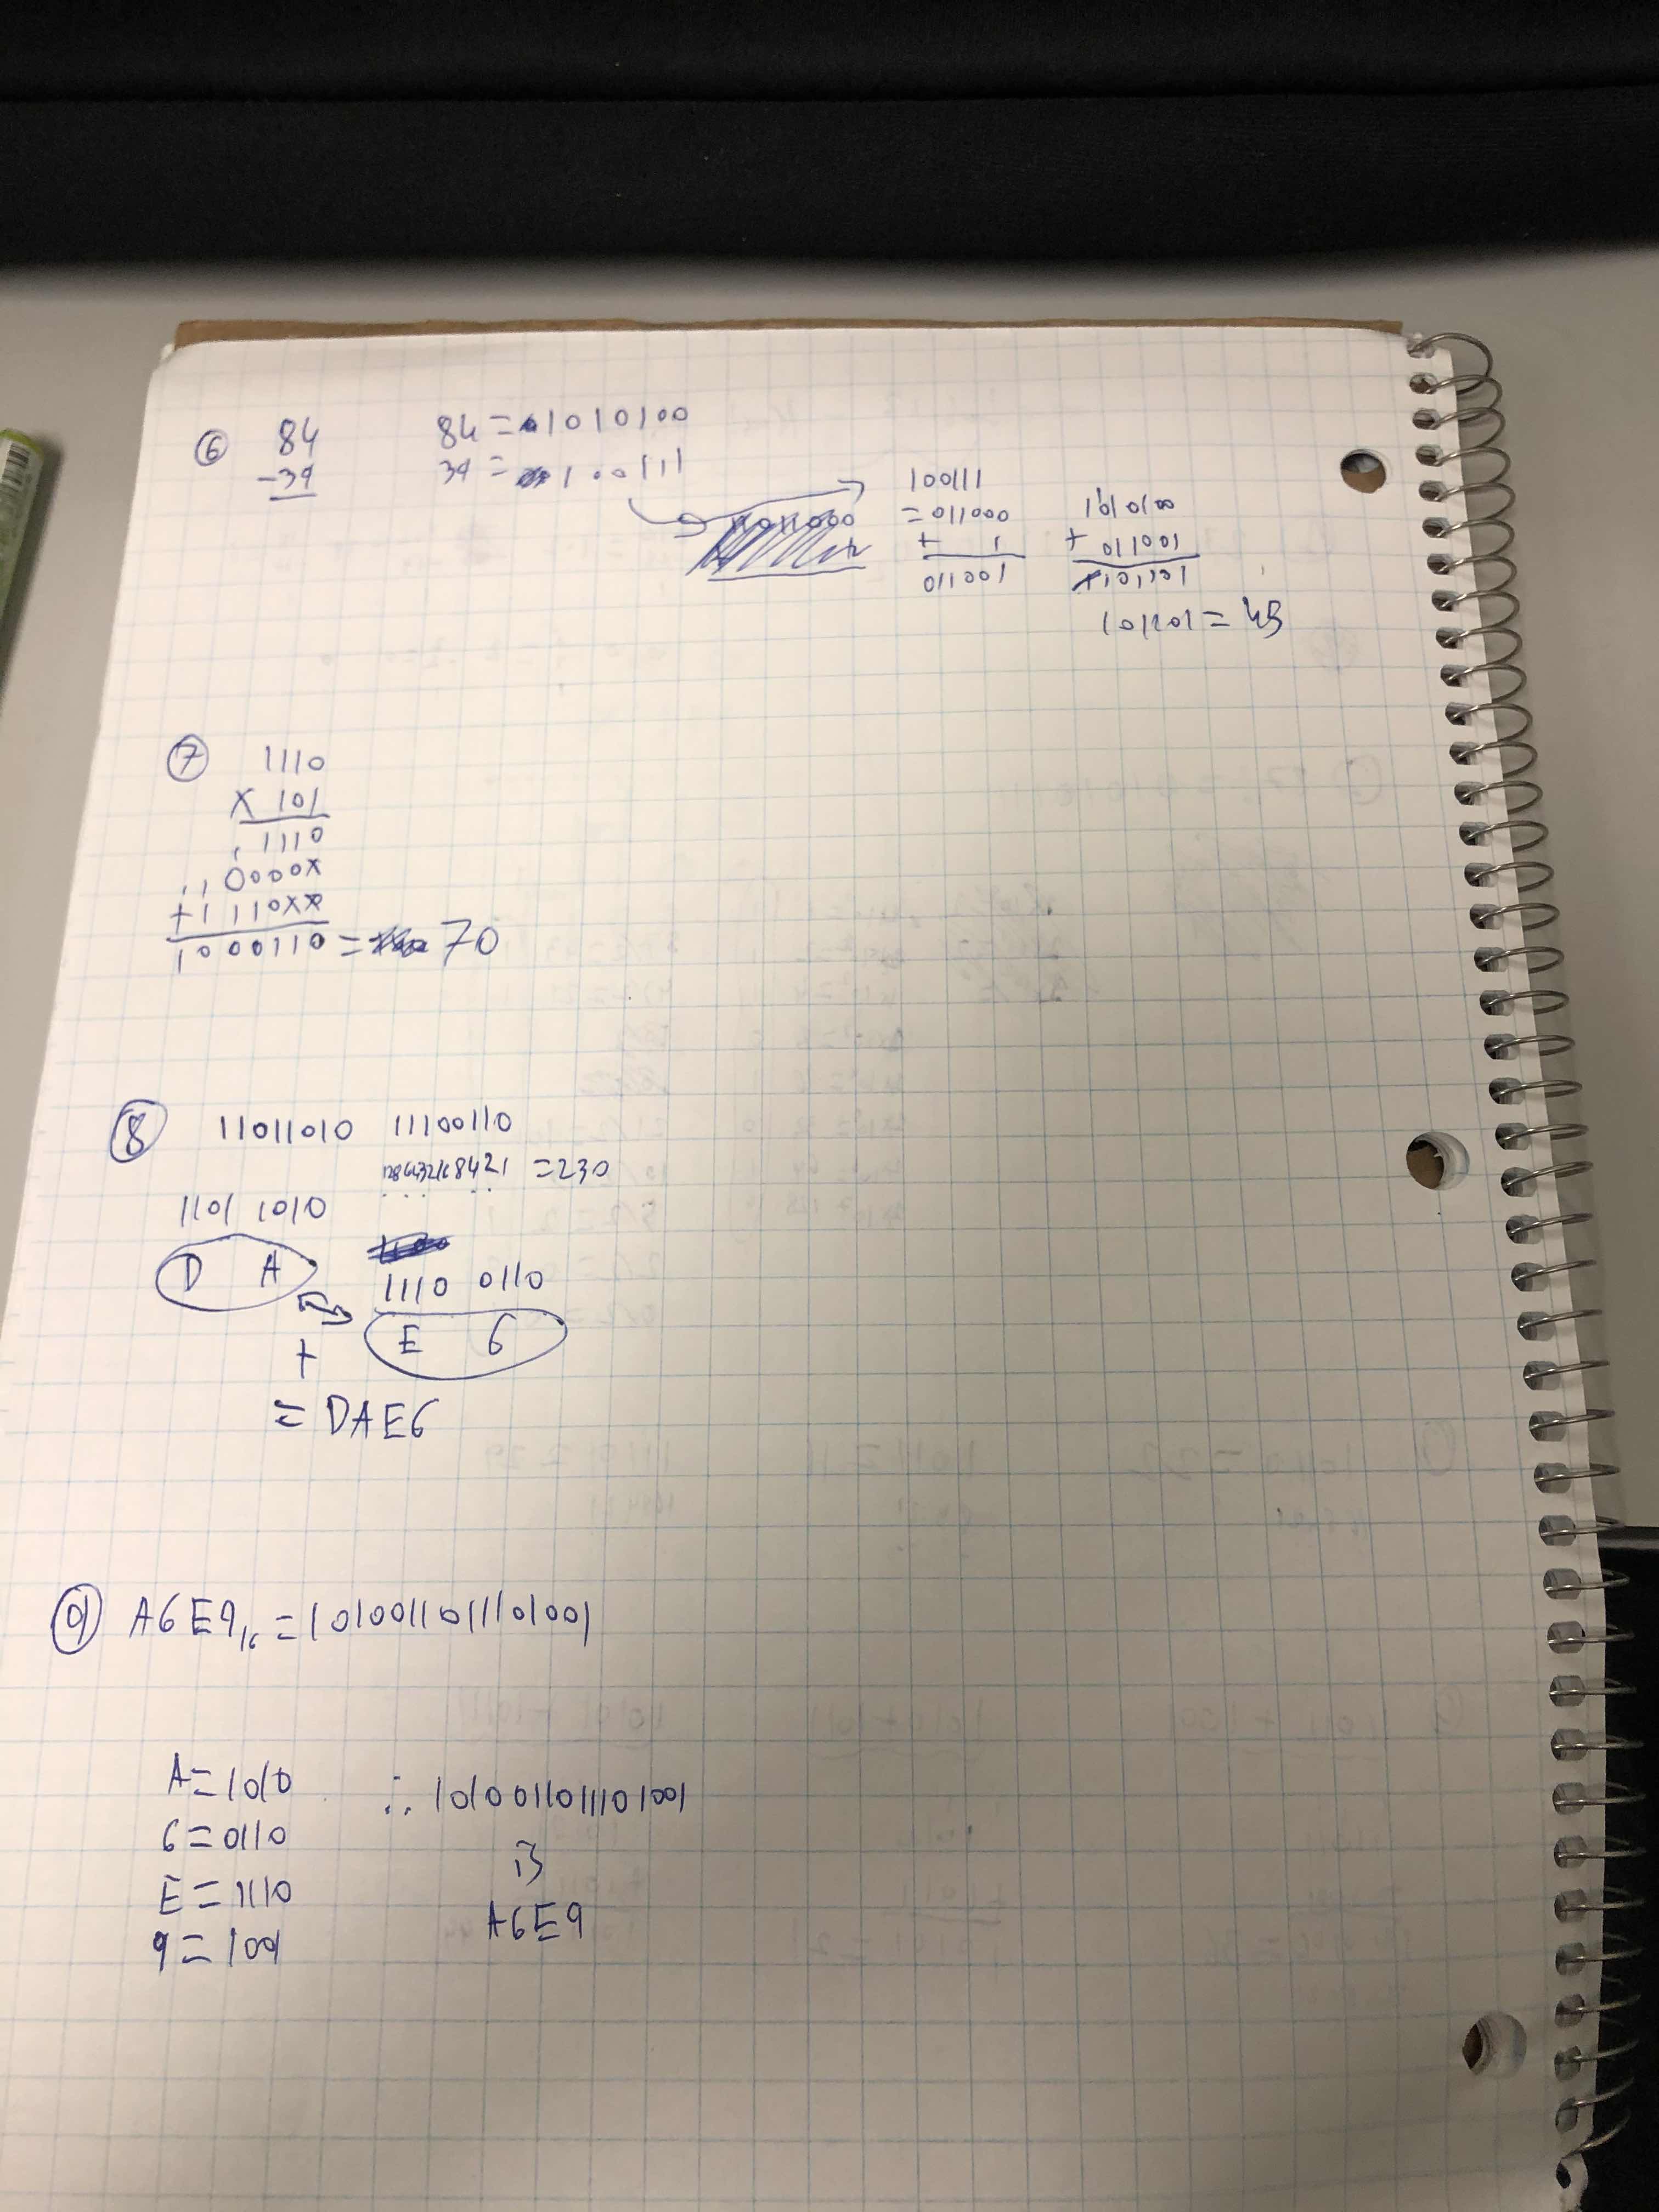 ⑥ 84 84 = 1010100
-39 39 = 100111
100111
= 011000 1010100
+ 1 + 011001
011001 1101101
101101 = 45
⑦ 1110
X 101
1110
0000x
+ 1110xx
1000110 = 70
⑧ 11011010 11100110
1286432168421 = 230
1101 1010
D A
1110 0110
E 6
+
= DAE6
⑨ A6E9₁₆ = 1010011011101001
A = 1010 ∴ 1010011011101001
6 = 0110 is
E = 1110 A6E9
9 = 1001